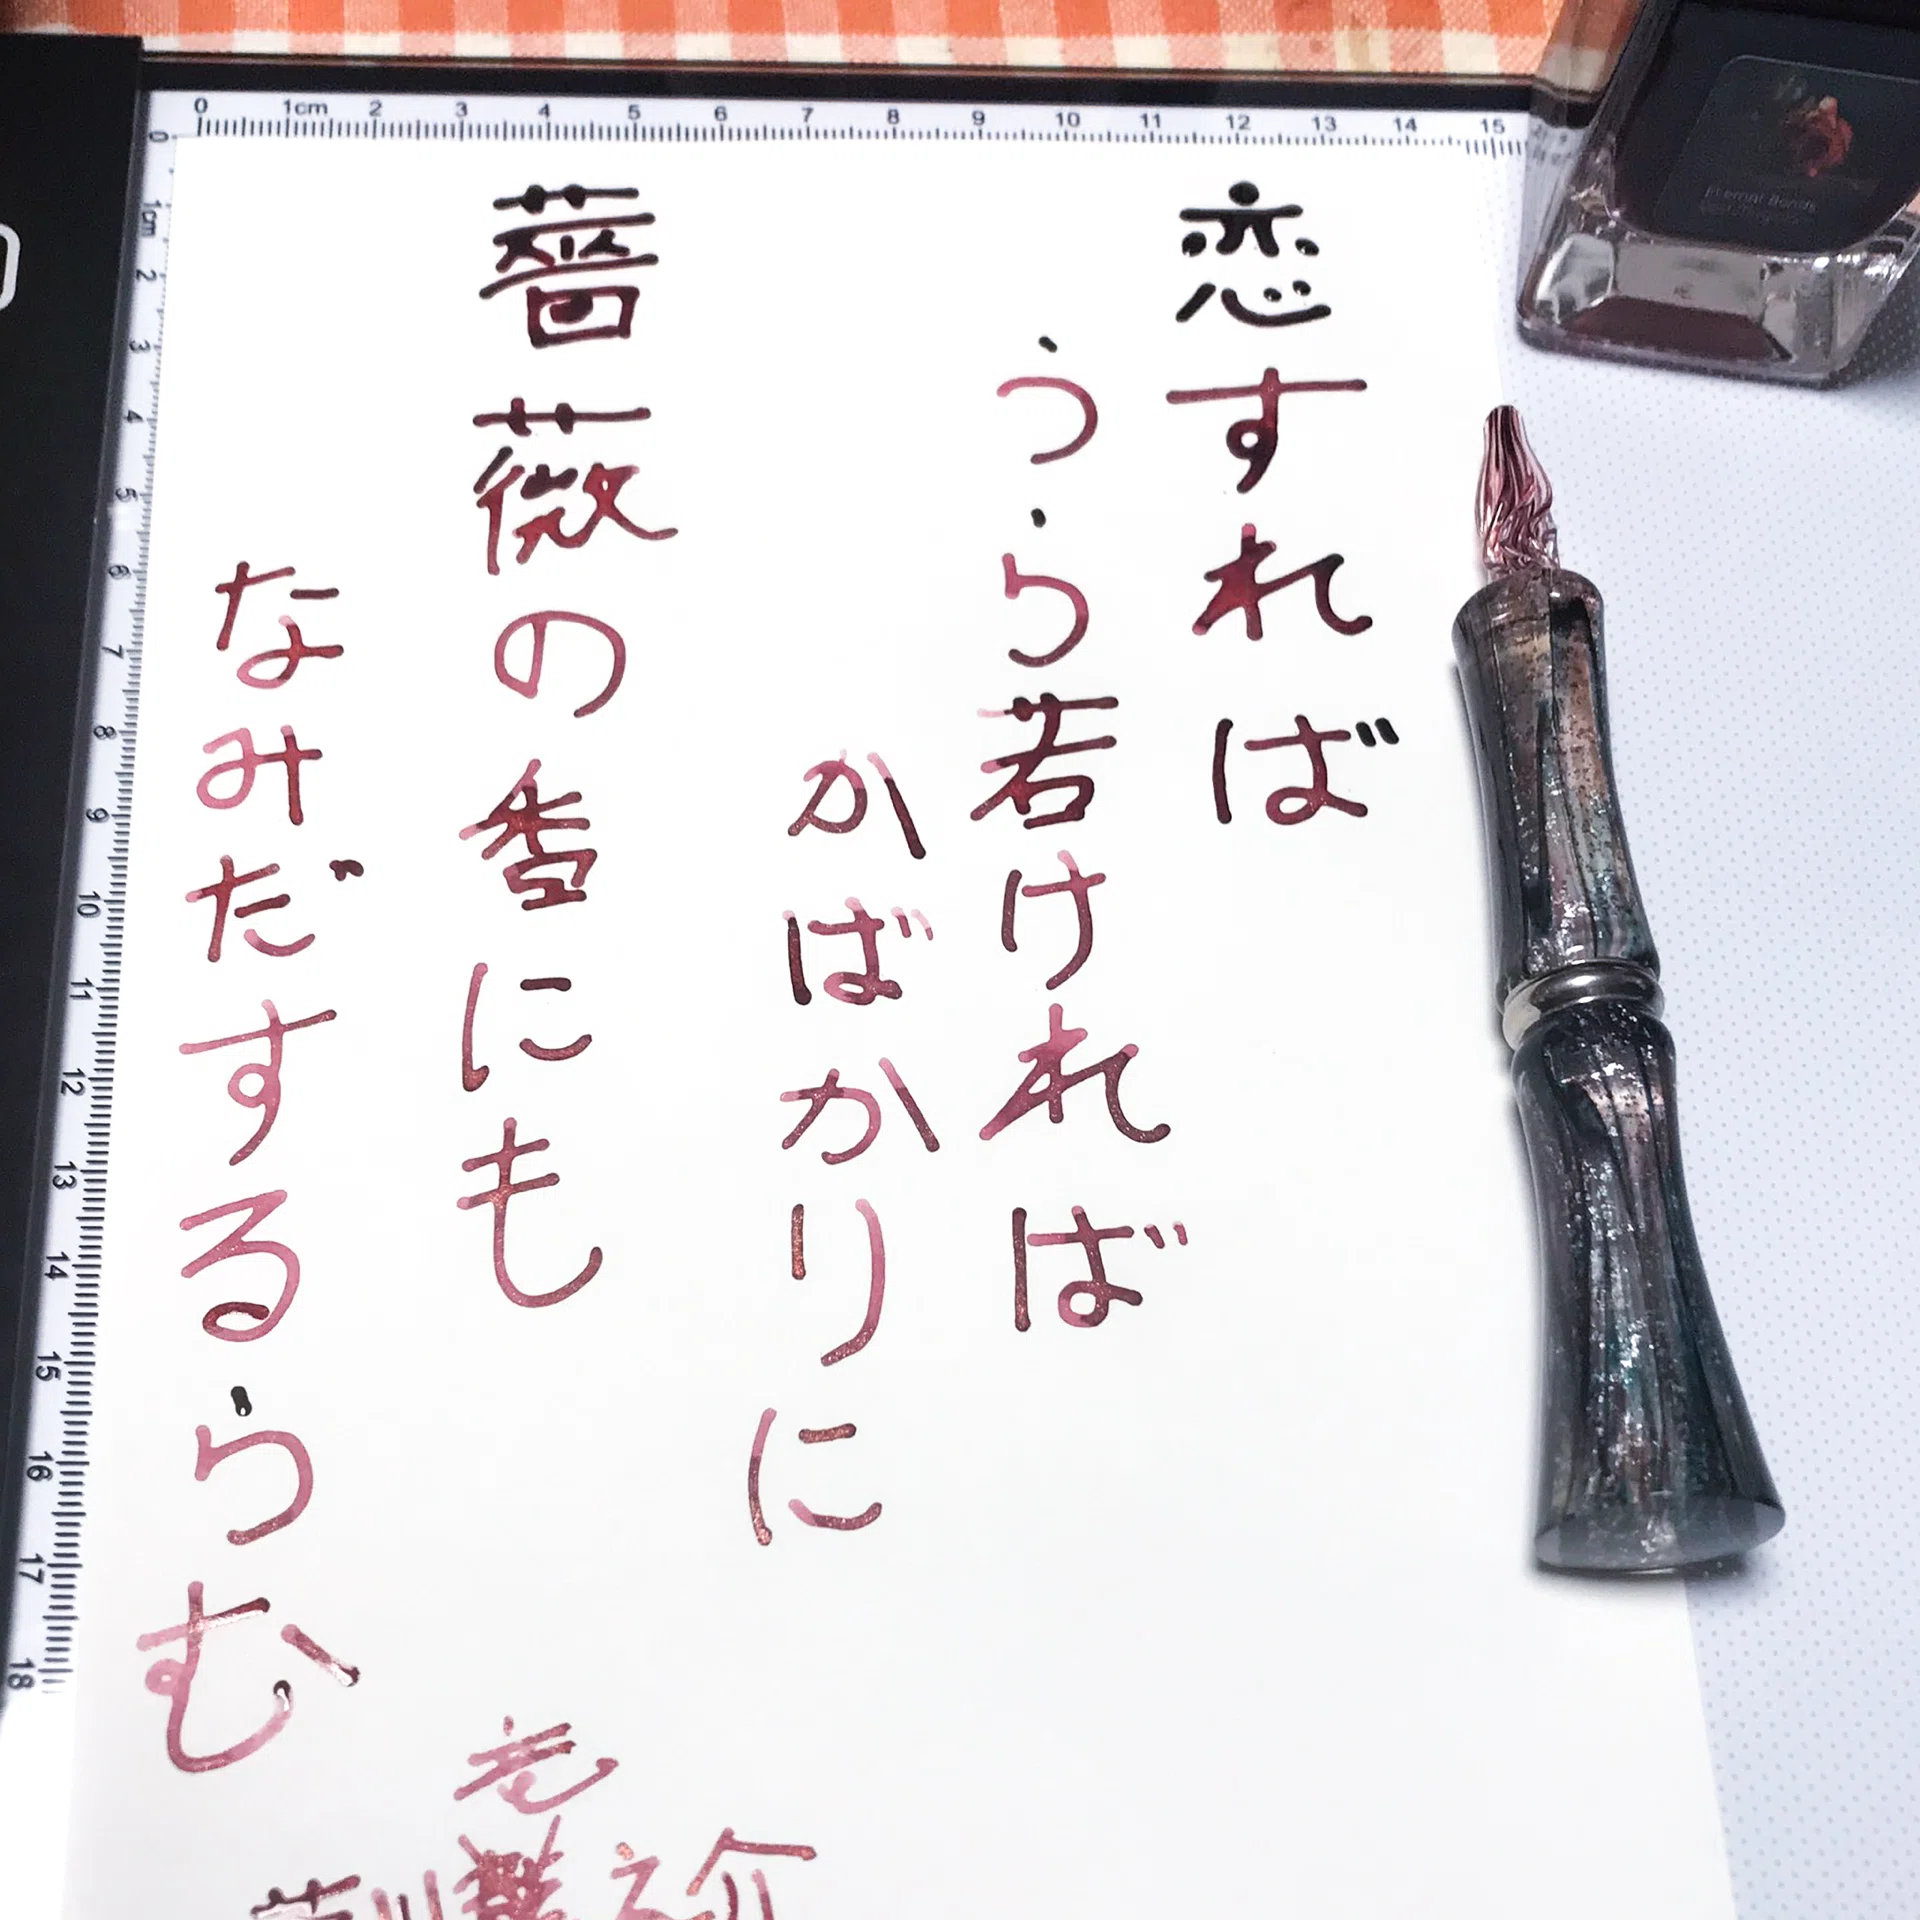 恋すれば
うら若ければ
かばかりに
薔薇の香にも
なみだするらむ
芥川龍之介
0 1cm 2 3 4 5 6 7 8 9 10 11 12 13 14 15
0 1cm 2 3 4 5 6 7 8 9 10 11 12 13 14 15 16 17 18
Eternal Bonds